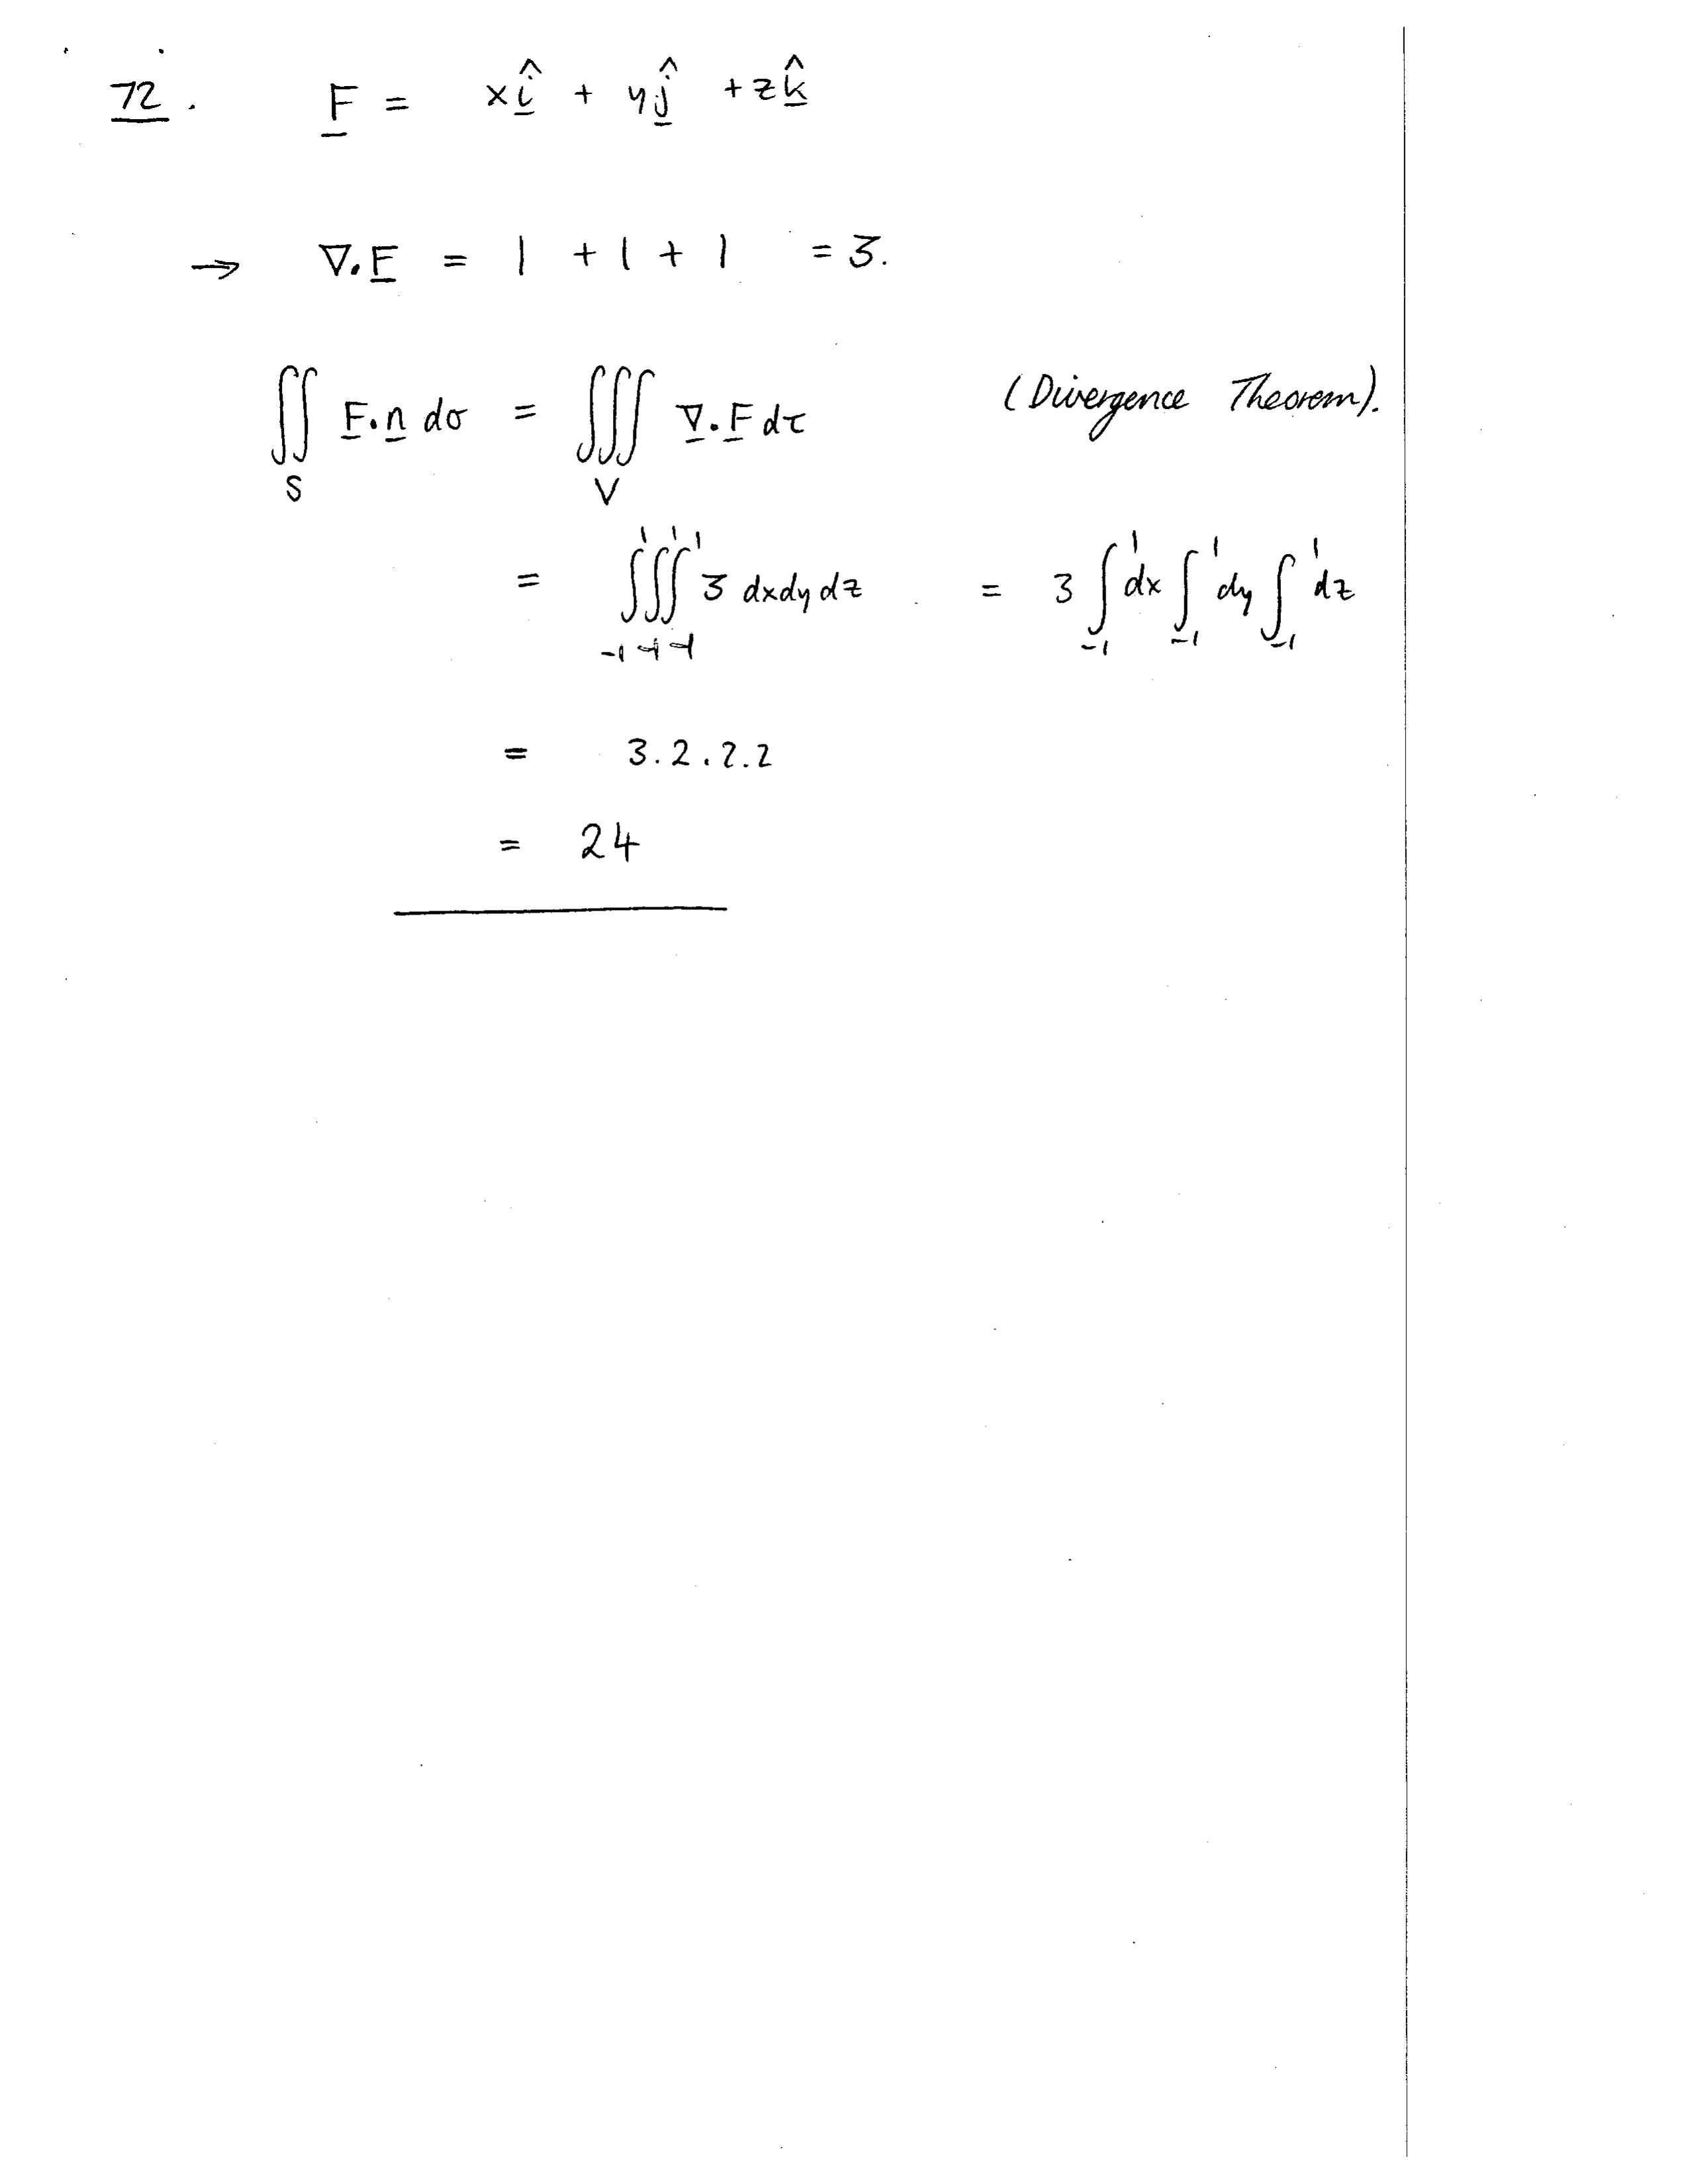 72. F = xî + yĵ + zk̂
→ ∇.F = 1 + 1 + 1 = 3.
∬_S F.n dσ = ∭_V ∇.F dτ (Divergence Theorem).
= ∫_{-1}^{1}∫_{-1}^{1}∫_{-1}^{1} 3 dxdydz = 3 ∫_{-1}^{1} dx ∫_{-1}^{1} dy ∫_{-1}^{1} dz
= 3.2.2.2
= 24